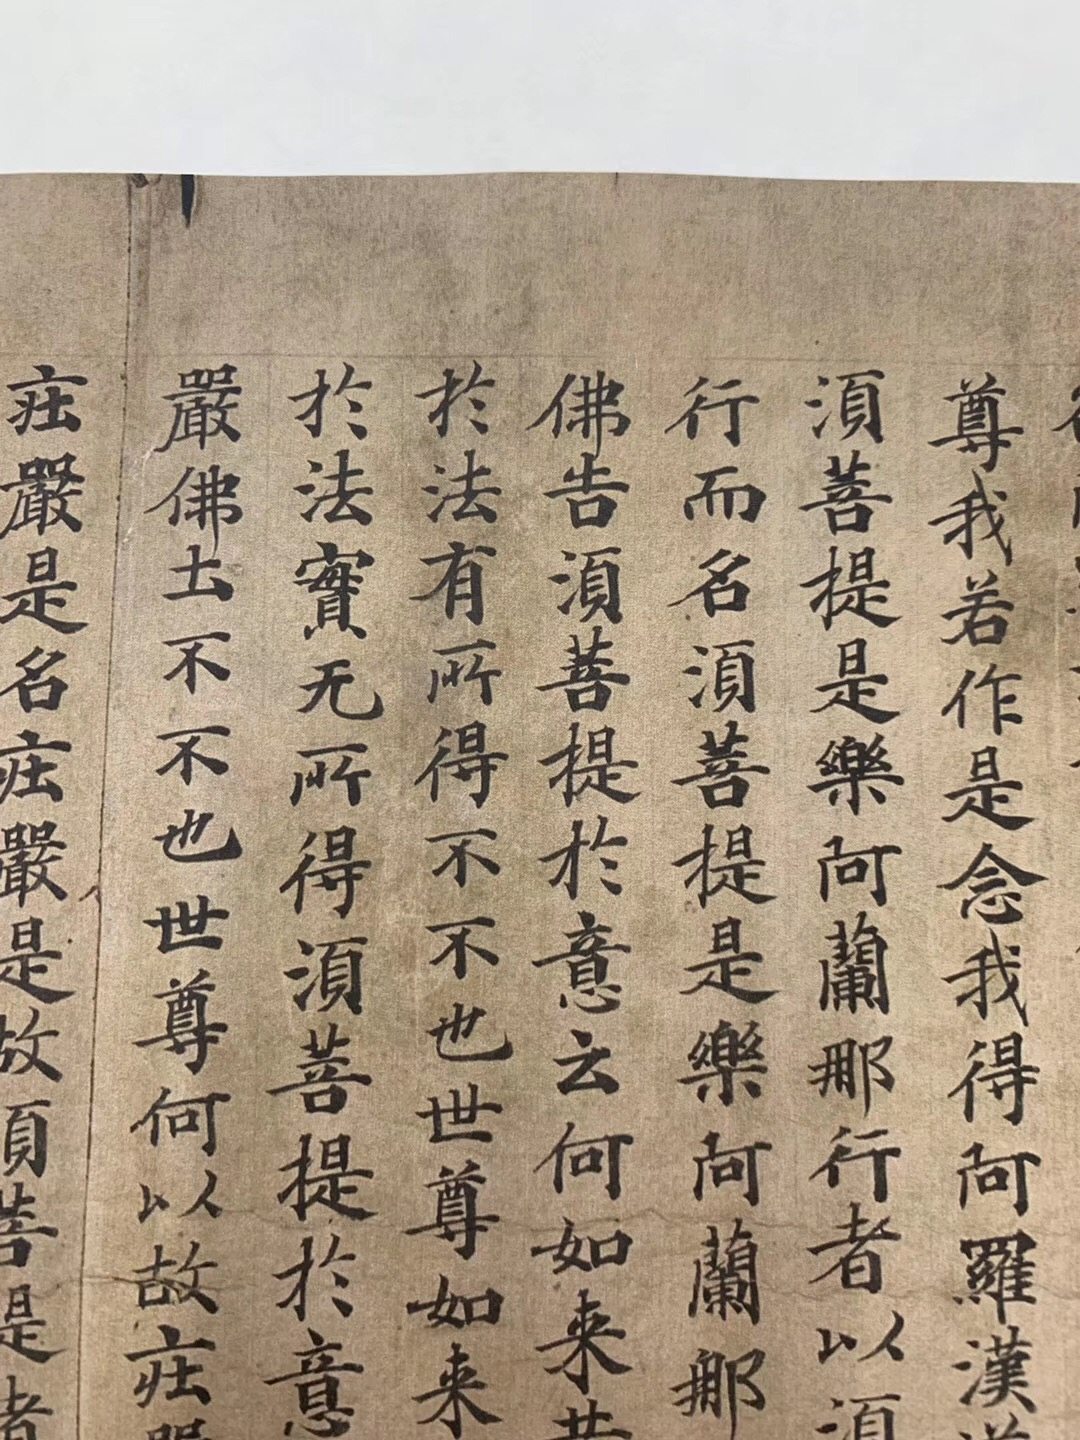 尊我若作是念我得阿羅漢
湏菩提是樂阿蘭那行者以湏
行而名湏菩提是樂阿蘭那
佛告湏菩提於意云何如来昔
於法有所得不不也世尊如来
於法實无所得湏菩提於意
嚴佛土不不也世尊何以故庄嚴
庄嚴是名庄嚴是故湏菩提諸